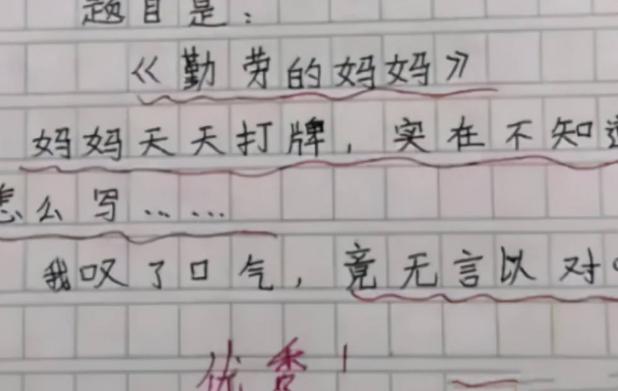 题目是：
《勤劳的妈妈》
妈妈天天打牌，实在不知道
怎么写……
我叹了口气，竟无言以对。
优秀！